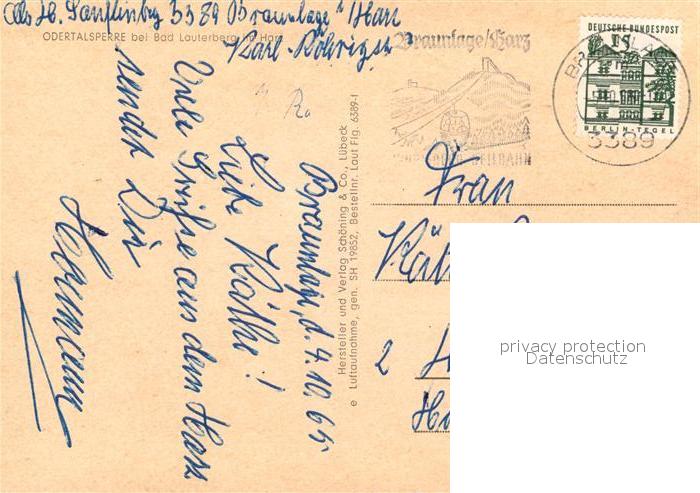 3389 Braunlage / Harz
ODERTALSPERRE bei Bad Lauterberg im Harz
Karl-Röhrigstr
Braunlage, d. 4.10.65
Liebe Käthe!
Viele Grüße aus dem Harz
sendet Dir
Hermann
Hersteller und Verlag Schöning & Co., Lübeck
Luftaufnahme, gen. SH 19852, Bestellnr. Laut Flg. 6389-1
Braunlage/Harz
WURMBERG-SEILBAHN
DEUTSCHE BUNDESPOST
15
BERLIN-TEGEL
3389
Frau
2
privacy protection
Datenschutz